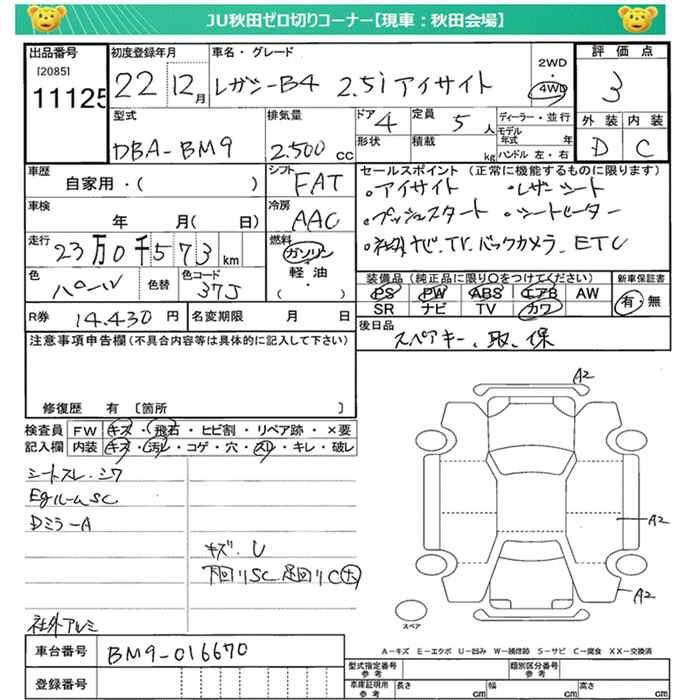 JU秋田ゼロ切りコーナー【現車：秋田会場】
出品番号 初度登録年月 車名・グレード 2WD ・ 4WD 評価点
[2085]
11125 22 12月 レガシーB4 2.5i アイサイト 3
型式 排気量 ドア 4 定員 5人 ディーラー・並行 外装 内装
DBA-BM9 2.500cc 形状 積載 kg モデル年式 年 D C
ハンドル 左・右
車歴 シフト セールスポイント (正常に機能するものに限ります)
自家用・( ) FAT 。アイサイト 。レザーシート
車検 冷房 。プッシュスタート 。シートヒーター
年 月( 日) AAC 。社外ナビ.TV.バックカメラ.ETC
走行 燃料
23万0千573km ガソリン・軽油・( )
色 色替 色コード 装備品 (純正品に限り○をつけてください) 新車保証書
パール 37J PS PW ABS エアB AW 有・無
SR ナビ TV カワ
R券 14.430円 名変期限 月 日 後日品
スペアキー、取、保
注意事項申告欄(不具合内容等は具体的に記入して下さい)
修復歴 有 〔箇所 〕
検査員記入欄 FW キズ・飛石・ヒビ割・リペア跡・×要
内装 キズ・汚レ・コゲ・穴・スレ・キレ・破レ
シートスレ.シワ
EgルームSC
Dミラ-A
キズ.U
下回リSC.足回リC大
社外アルミ
A2
A2
A2
スペア
A-キズ E-エクボ U-凹み W-補修跡 S-サビ C-腐食 XX-交換済
車台番号 BM9-016670
登録番号
型式指定番号 参考 類別区分番号 参考
車庫証明用 参考 長さ cm 幅 cm 高さ cm